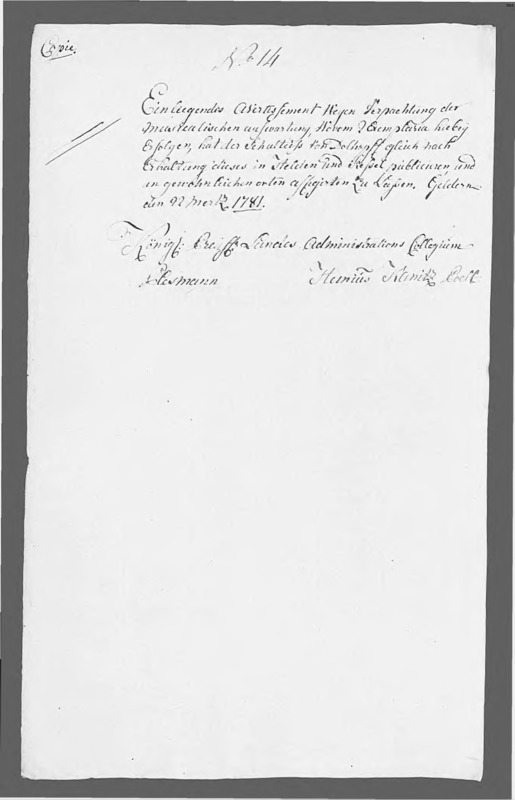 Copie.
No 14
Einliegendes Avertissement wegen Verpachtung der
musicalischen aufwartung, wovon 2 Exemplaria hiebey
Erfolgen, hat der Schultheiss von Dolhoff gleich nach
Erhaltung dieses in Helden und Kessel publiciren und
an gewohnlichen orten affigirten zu Lassen. Geldern
den 22 Mertz 1781.
Königl: Preiss: Landes Administrations Collegium
Plesmann Heinius Kunitz Coell